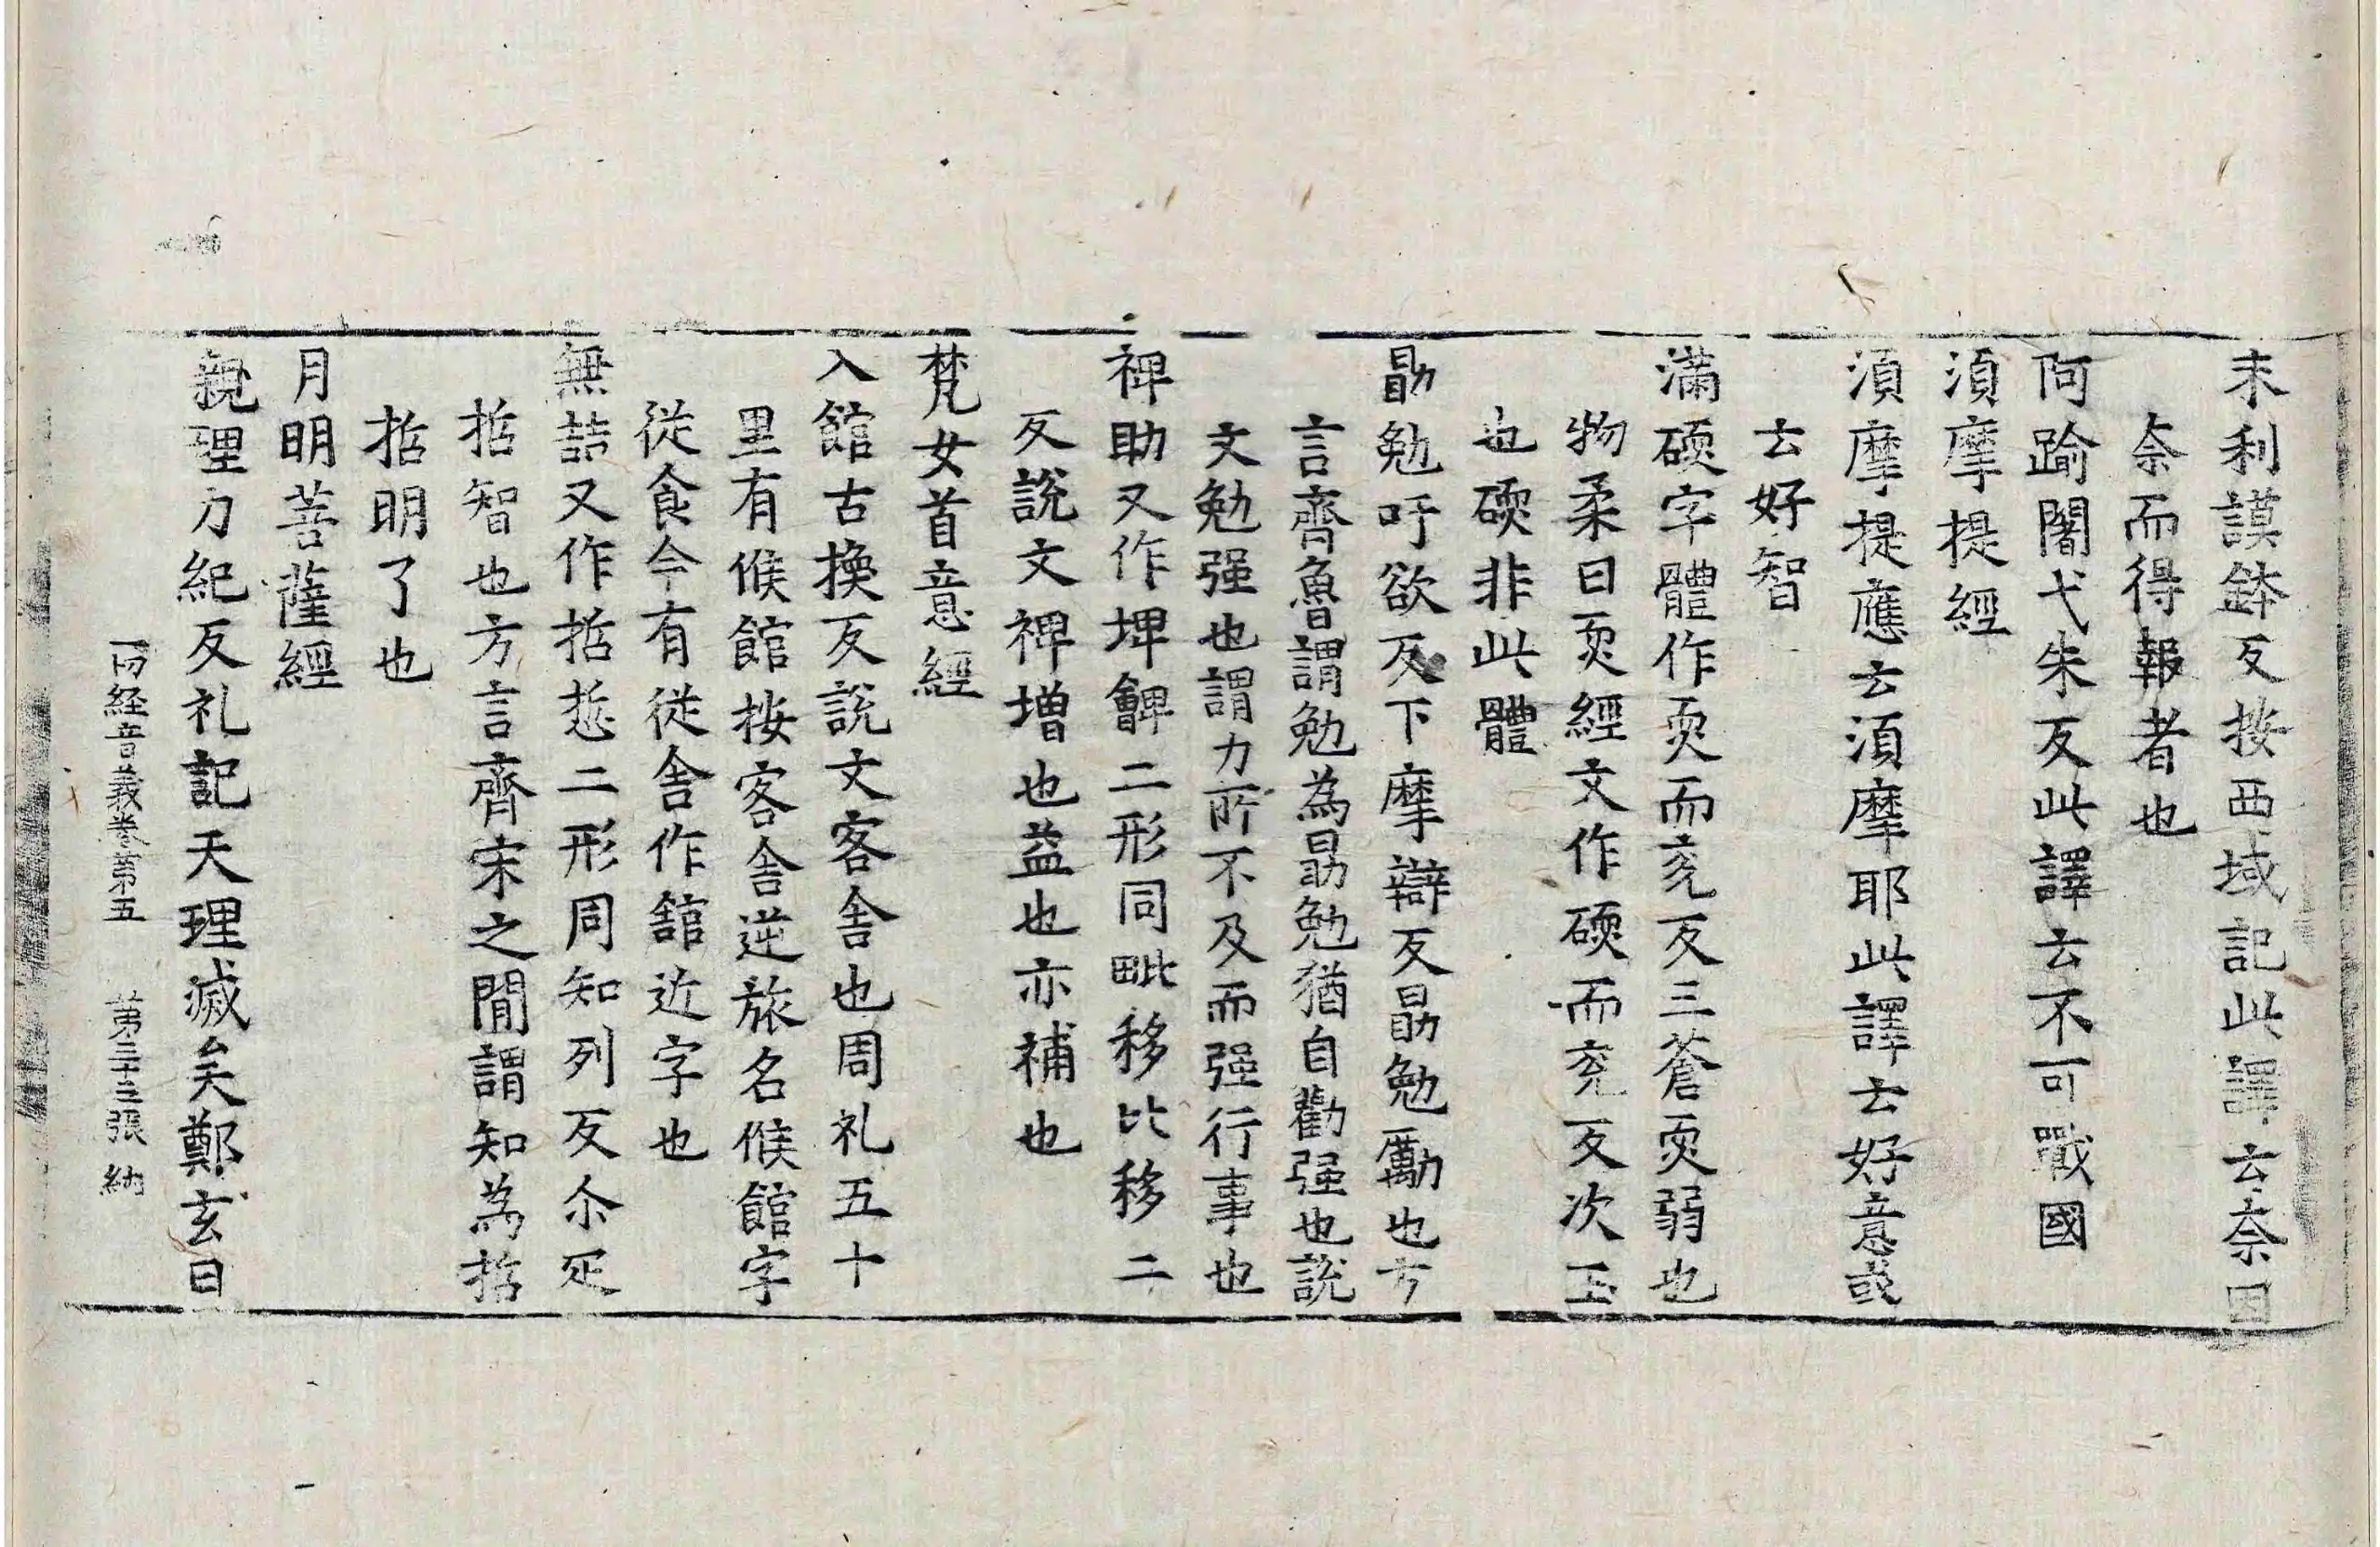 末利謨鉢反按西域記此譯云奈因
奈而得報者也
阿踰闍弋朱反此譯云不可戰國
湏摩提經
湏摩提應云湏摩耶此譯云好意或
云好智
滿碝字體作耎而兖反三蒼耎弱也
物柔曰耎經文作碝而兖反次玉
也碝非此體
勗勉吁欲反下摩辯反勗勉勵也方
言齊魯謂勉為勗勉猶自勸强也說
文勉强也謂力所不及而强行事也
裨助又作埤䚜二形同毗移比移二
反說文裨增也益也亦補也
梵女首意經
入館古換反說文客舍也周礼五十
里有候館按客舍逆旅名候館字
從食今有從舍作舘近字也
無喆又作哲悊二形同知列反尒疋
哲智也方言齊宋之間謂知為哲
哲明了也
月明菩薩經
親理力紀反礼記天理滅矣鄭玄曰
一切経音義卷苐五 苐三十三張 納